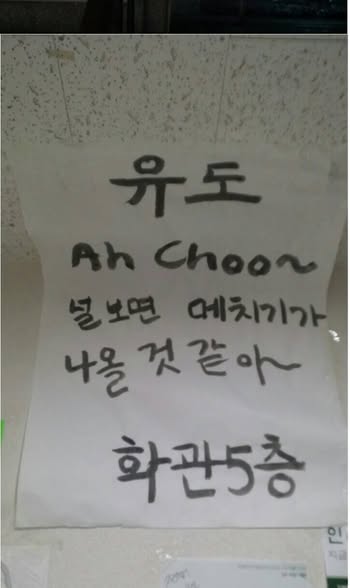 유도
Ah Choo~
널보면 메치기가
나올 것 같아~
화관5층
인